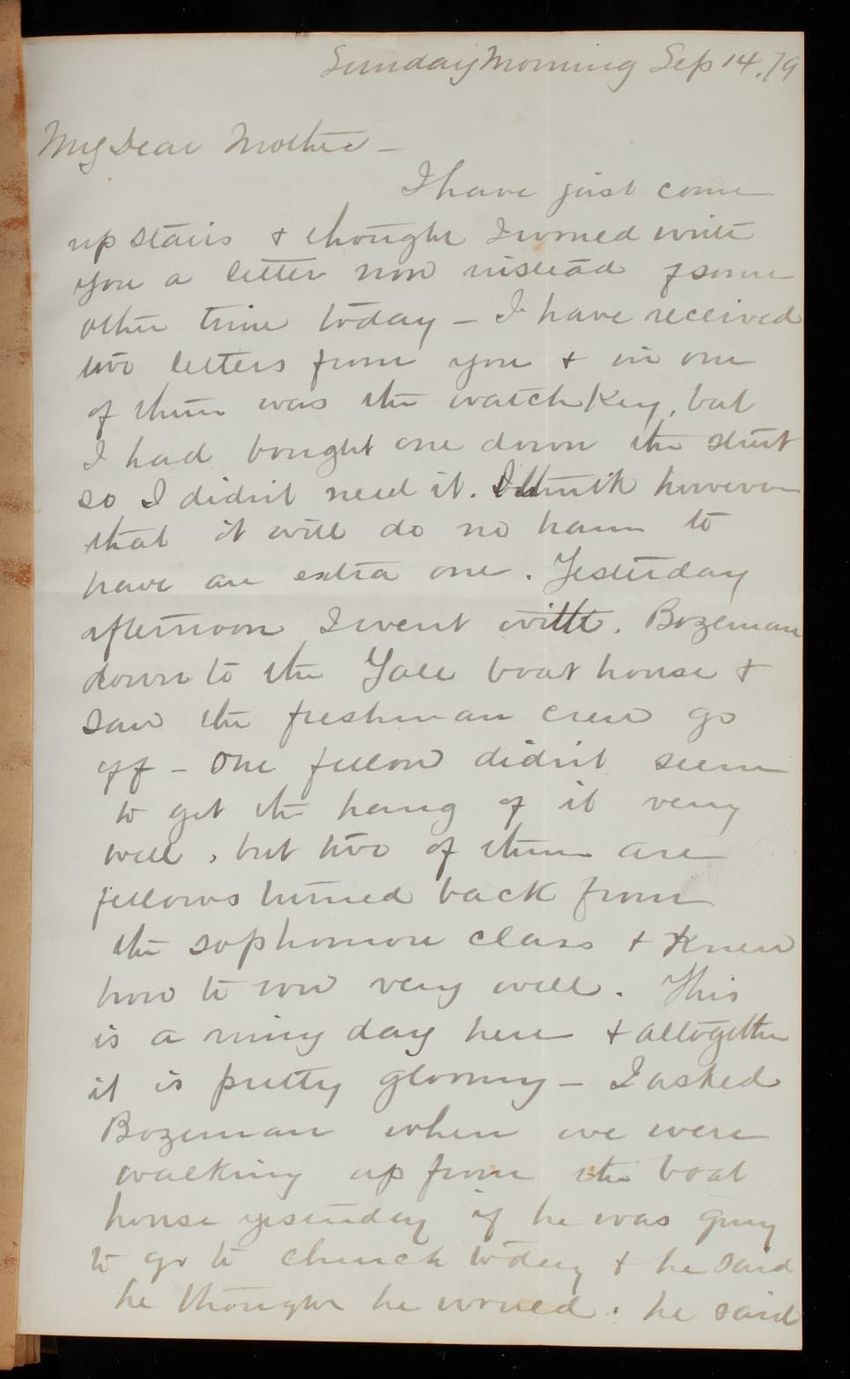 Sunday Morning Sep 14. 79
My Dear Mother -
I have just come
up stairs & thought I would write
you a letter now instead of some
other time today - I have received
two letters from you & in one
of them was the watch key, but
I had bought one down the street
so I didn't need it. I think however
that it will do no harm to
have an extra one. Yesterday
afternoon I went with. Bozeman
down to the Yale boat house &
saw the freshman crew go
off - One fellow didn't seem
to get the hang of it very
well, but two of them are
fellows turned back from
the sophomore class & knew
how to row very well. This
is a rainy day here & altogether
it is pretty gloomy - I asked
Bozeman when we were
walking up from the boat
house yesterday if he was going
to go to church today & he said
he thought he would. he said